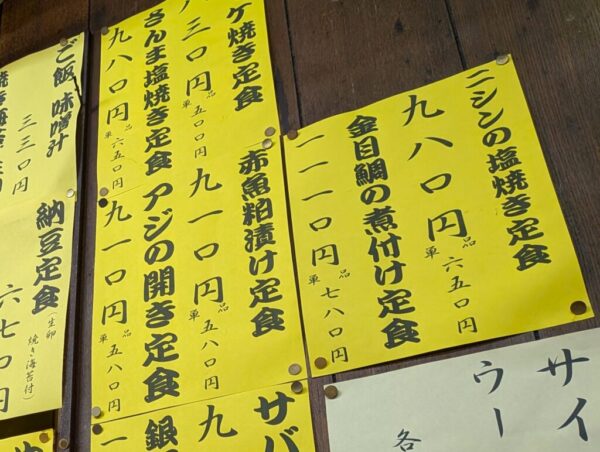 ニシンの塩焼き定食
九八〇円
単品 六五〇円
金目鯛の煮付け定食
一一一〇円
単品 七八〇円
ケ焼き定食
八三〇円
単品 五〇〇円
さんま塩焼き定食
九八〇円
単品 六五〇円
赤魚粕漬け定食
九一〇円
単品 五八〇円
アジの開き定食
九一〇円
単品 五八〇円
ご飯 味噌汁
三三〇円
納豆定食
(生卵
焼き海苔付)
六七〇円
サバ
九
銀
一
サイ
ウー
各